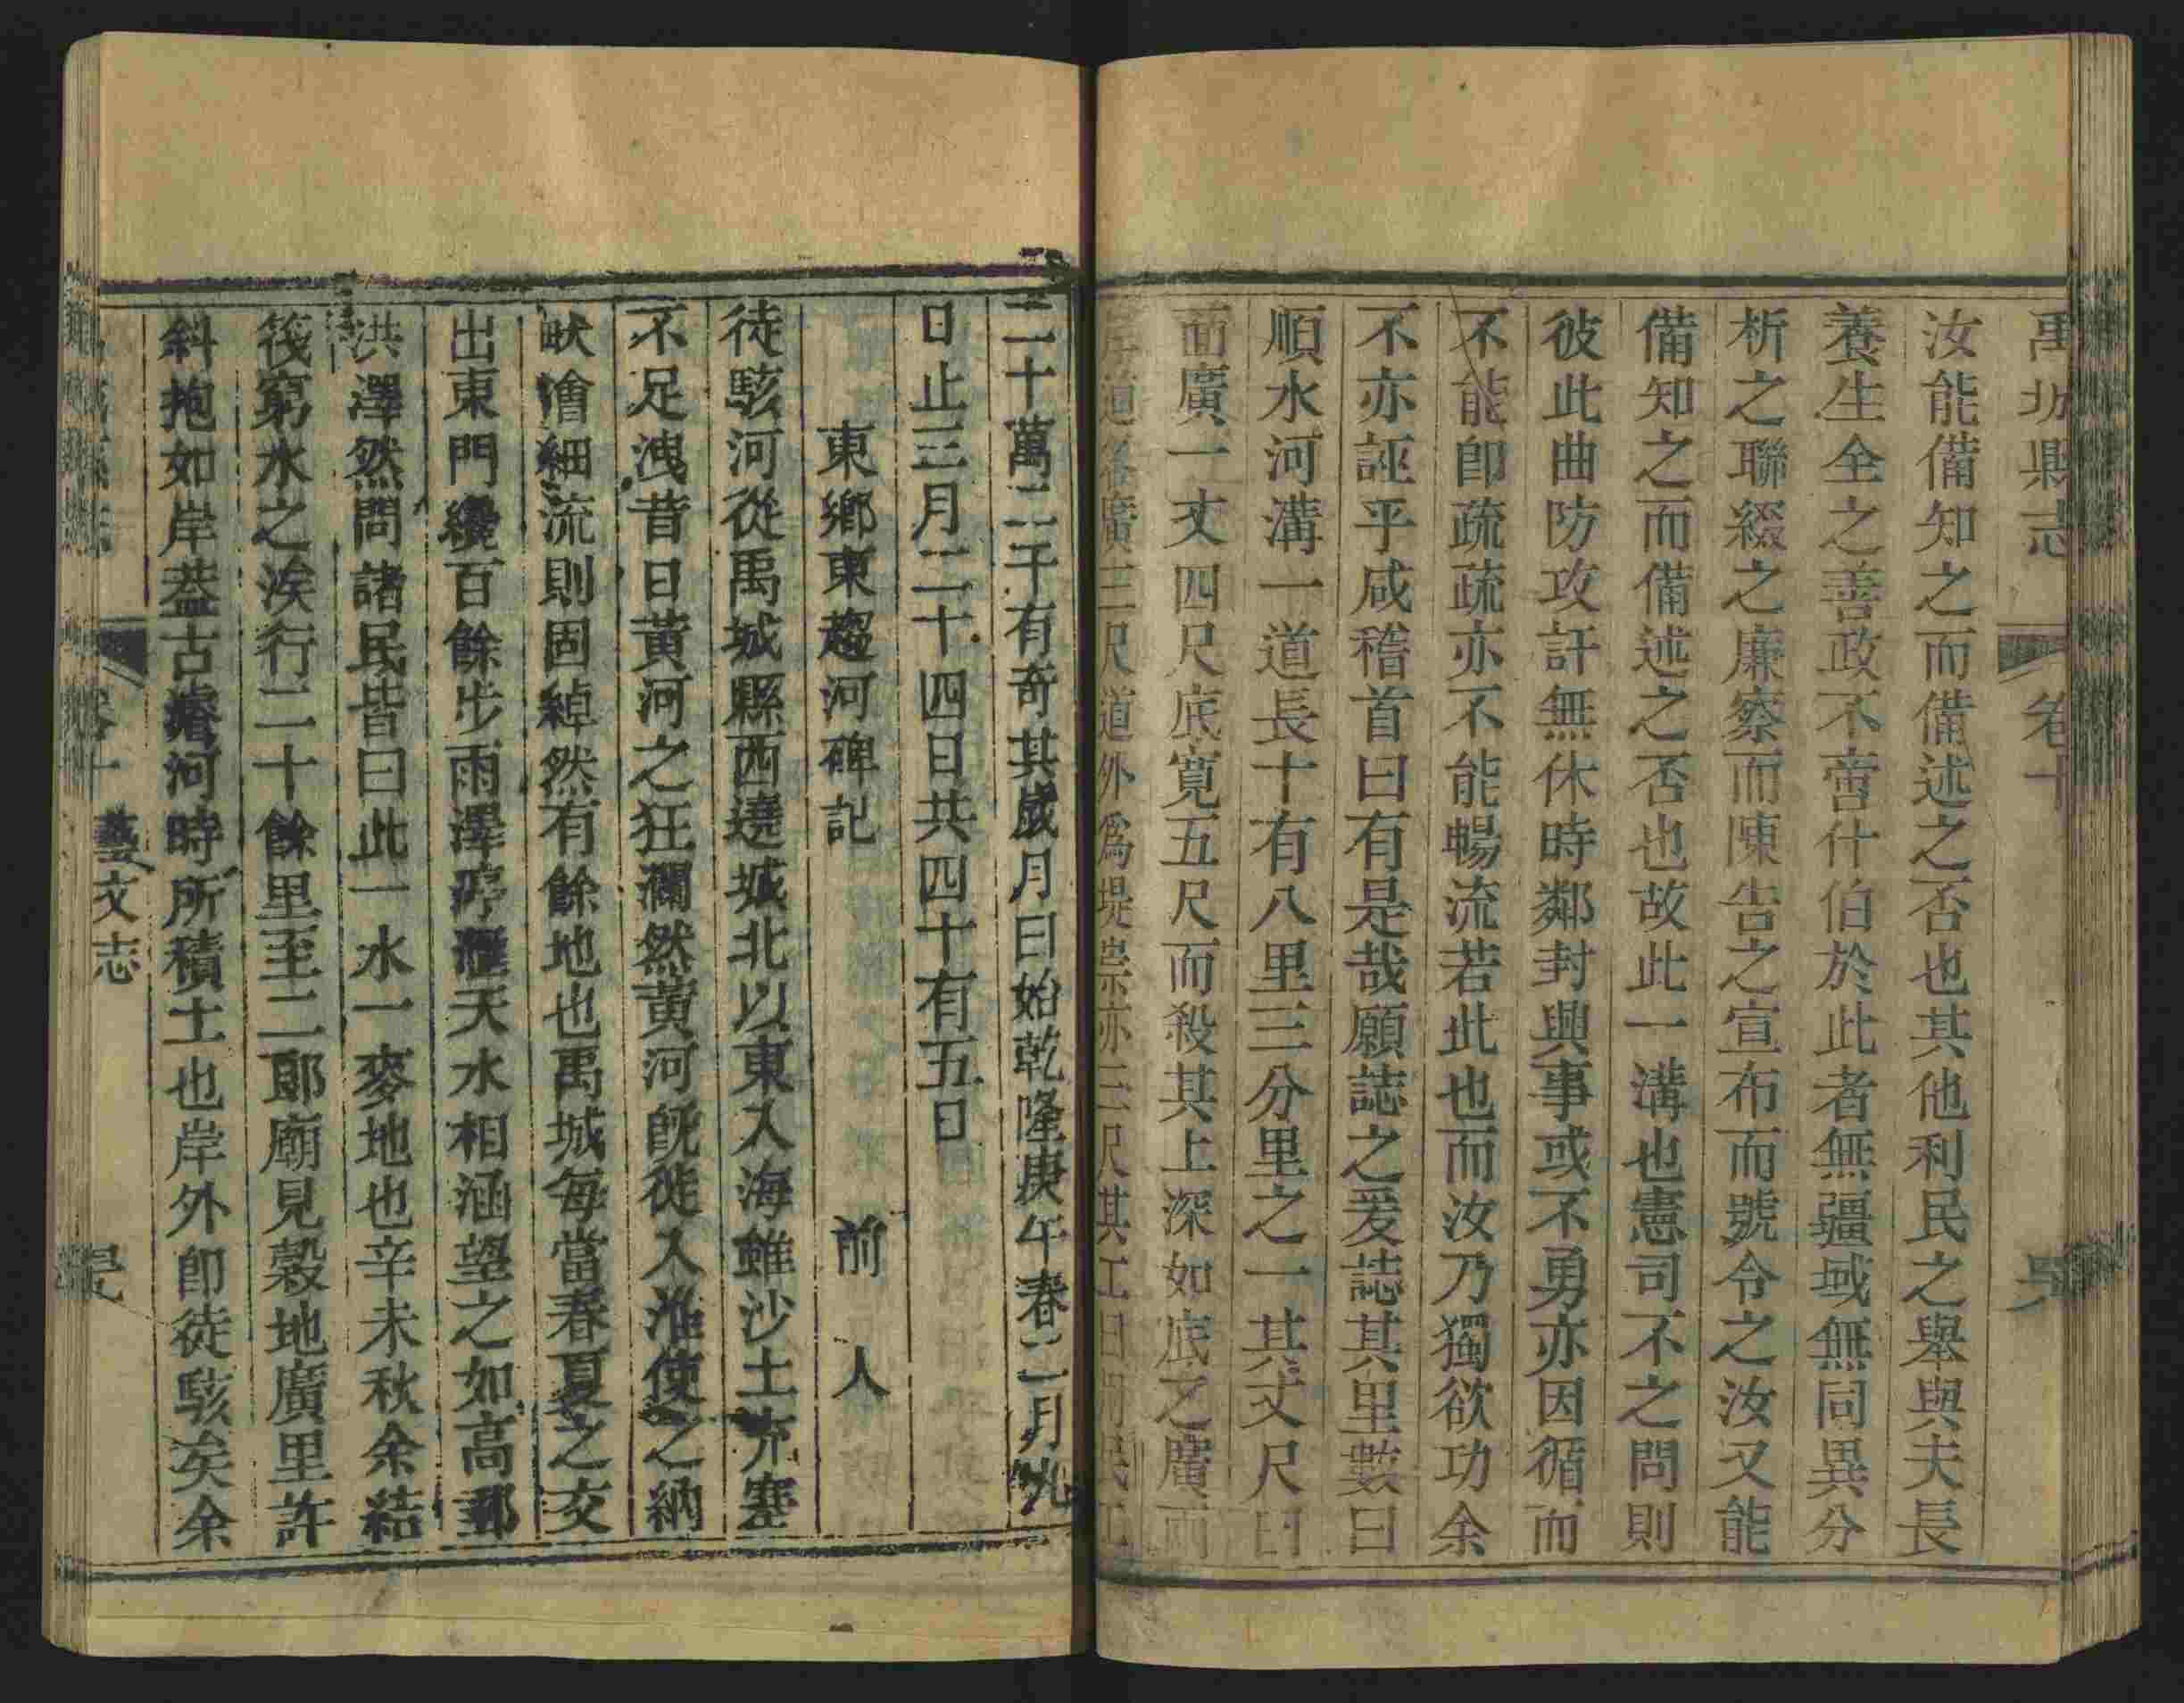 禹城縣志
卷十
汝能備知之而備述之否也其他利民之舉與夫長
養生全之善政不啻什伯於此者無疆域無同異分
析之聯綴之廉察而陳告之宣布而號令之汝又能
備知之而備述之否也故此一溝也憲司不之問則
彼此曲防攻訐無休時鄰封興事或不勇亦因循而
不能卽疏疏亦不能暢流若此也而汝乃獨欲功余
不亦誣乎咸稽首曰有是哉願誌之爰誌其里數曰
順水河溝一道長十有八里三分里之一其丈尺曰
面廣一丈四尺底寬五尺而殺其上深如底之廣而
道各廣三尺道外爲堤崇亦三尺其工曰
二十萬二千有奇其歲月曰始乾隆庚午春二月九
日止三月二十四日共四十有五日
東鄉東趨河碑記 前人
徒駭河從禹城縣西遶城北以東入海雖沙土充塞
不足洩昔日黃河之狂瀾然黃河旣徙入淮使之納
畎澮細流則固綽然有餘地也禹城每當春夏之交
出東門纔百餘步雨澤渟滙天水相涵望之如高郵
洪澤然問諸民皆曰此一水一麥地也辛未秋余結
筏窮水之涘行二十餘里至二郞廟見穀地廣里許
斜抱如岸葢古濬河時所積土也岸外卽徒駭矣余
卷十 藝文志